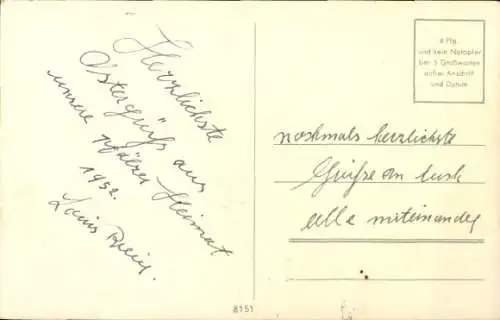 Herzlichste
Ostergrüße aus
unsere Pfälzer Heimat
1952.
Louis
4 Pfg
und kein Notopfer
bei 5 Grußworten
außer Anschrift
und Datum
nochmals herzlichste
Grüße an Euch
alle miteinander
8151